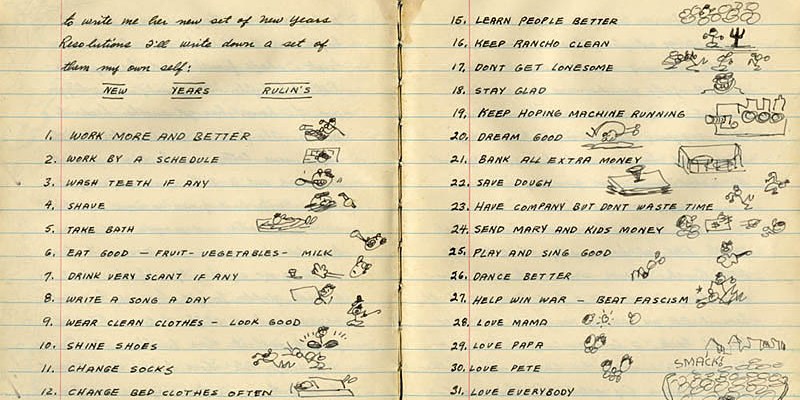 to write me her new set of New Years
Resolutions I'll write down a set of
them my own self:
NEW YEARS RULIN'S
1. WORK MORE AND BETTER
2. WORK BY A SCHEDULE
3. WASH TEETH IF ANY
4. SHAVE
5. TAKE BATH
6. EAT GOOD - FRUIT - VEGETABLES - MILK
7. DRINK VERY SCANT IF ANY
8. WRITE A SONG A DAY
9. WEAR CLEAN CLOTHES - LOOK GOOD
10. SHINE SHOES
11. CHANGE SOCKS
12. CHANGE BED CLOTHES OFTEN
15. LEARN PEOPLE BETTER
16. KEEP RANCHO CLEAN
17. DONT GET LONESOME
18. STAY GLAD
19. KEEP HOPING MACHINE RUNNING
20. DREAM GOOD
21. BANK ALL EXTRA MONEY
22. SAVE DOUGH
23. HAVE COMPANY BUT DONT WASTE TIME
24. SEND MARY AND KIDS MONEY
25. PLAY AND SING GOOD
26. DANCE BETTER
27. HELP WIN WAR - BEAT FASCISM
28. LOVE MAMA
29. LOVE PAPA
30. LOVE PETE
SMACK!
31. LOVE EVERYBODY